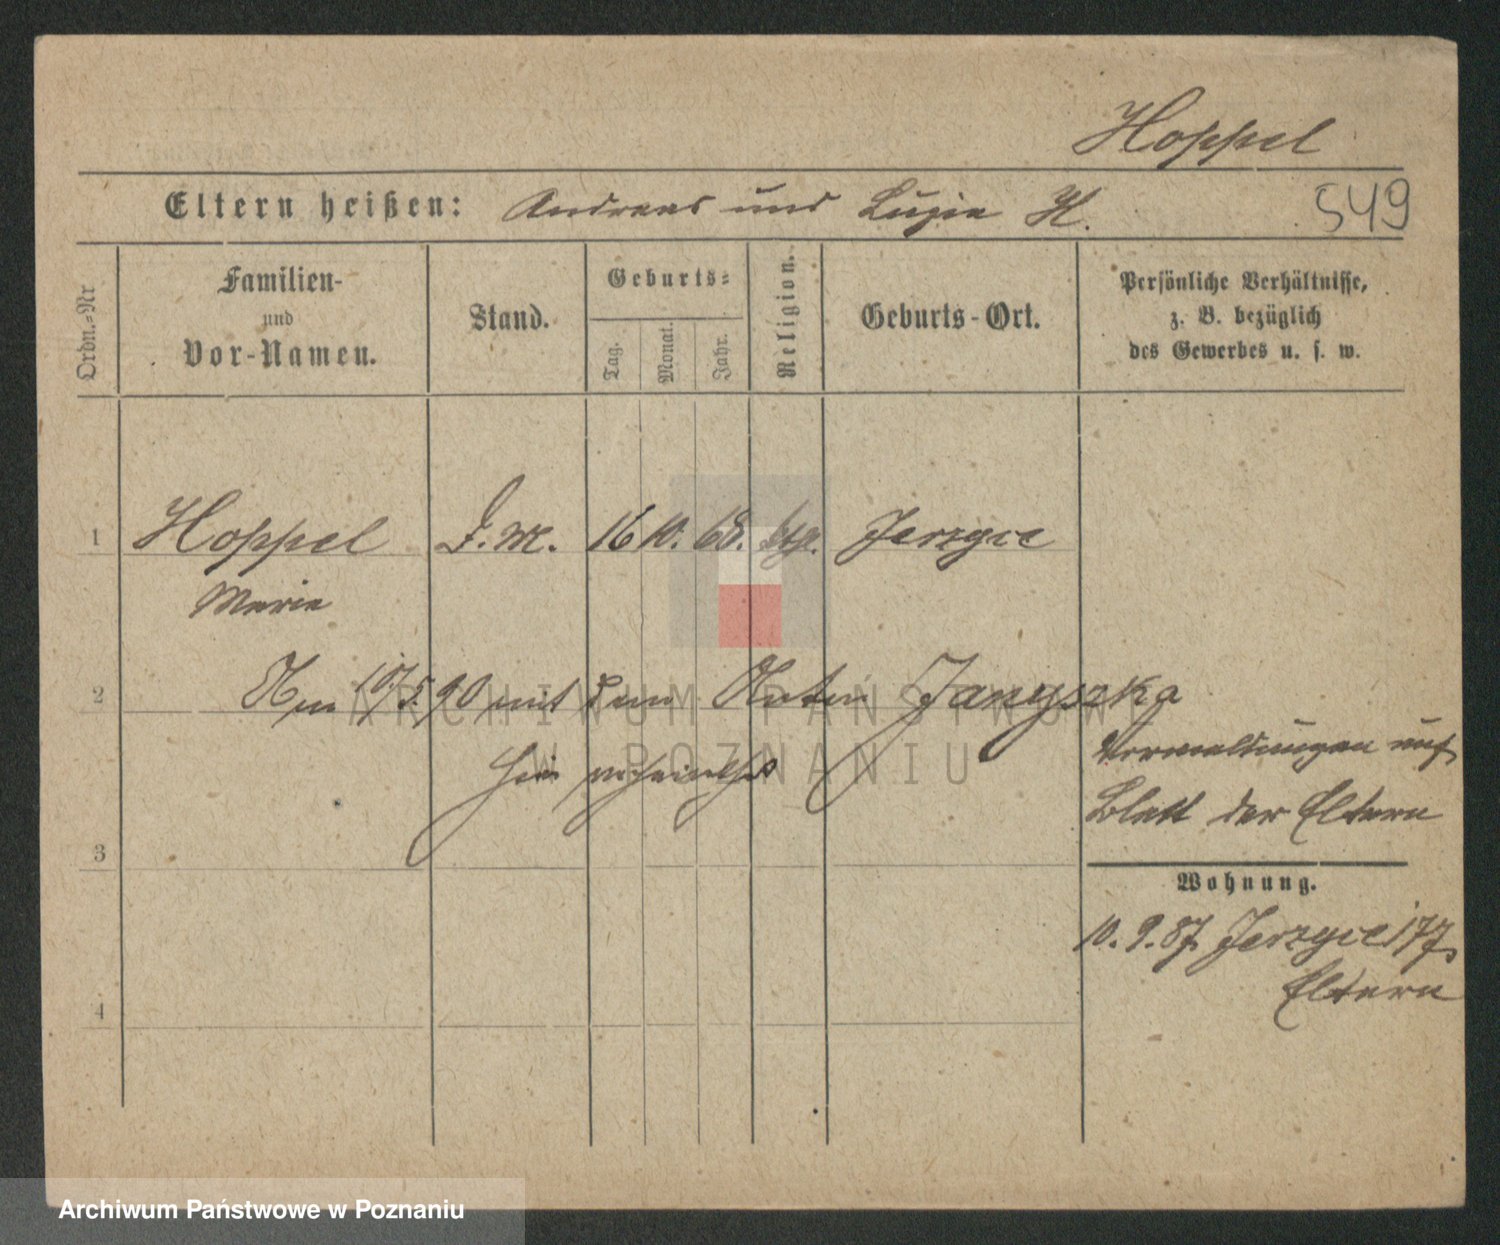 Hoppel
Eltern heißen: Andreas und Luzia H. 549
Ordn.-Nr
Familien-
und
Vor-Namen.
Stand.
Geburts-
Tag.
Monat.
Jahr.
Religion.
Geburts-Ort.
Persönliche Verhältnisse,
z. B. bezüglich
des Gewerbes u. s. w.
1 Hoppel D. M. 16 10. 68. ktp. Jerzyce
Marie
2 Am 10/5. 90 mit dem Janyszka
hier
Blatt der Eltern
3
Wohnung.
10. 9. 87. Jerzyce 177.
Eltern
4
ARCHIWUM PAŃSTWOWE
W POZNANIU
Archiwum Państwowe w Poznaniu